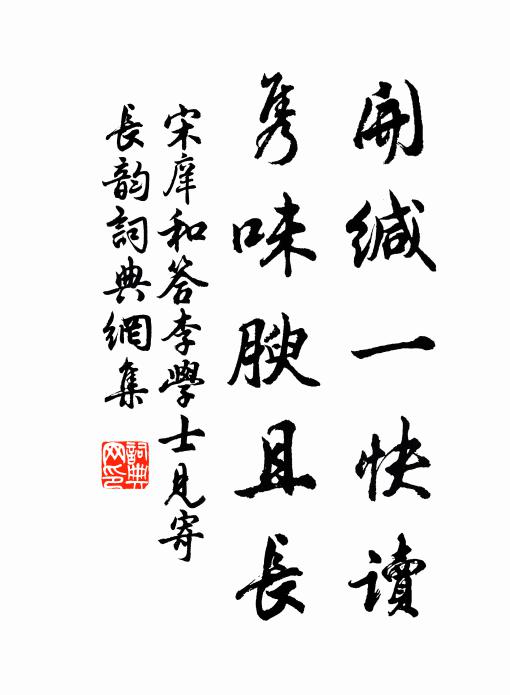 開緘一快讀
雋味腴且長
宋庠和答李學士見寄
長韵詞典網集
詞典网印